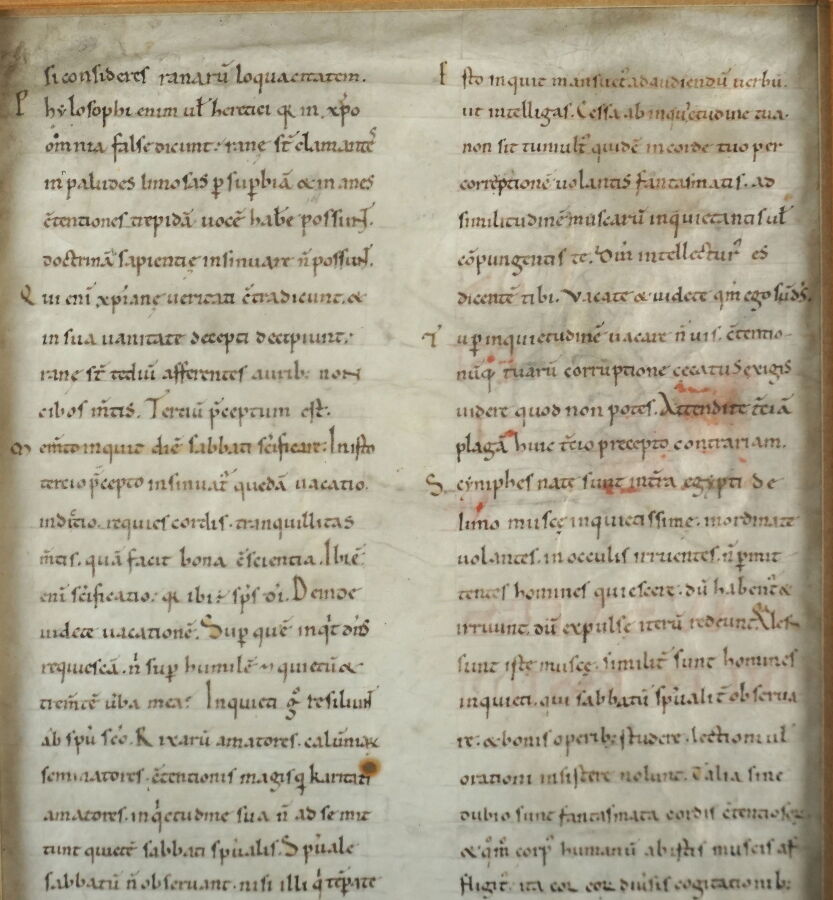 si consideres ranarū loquacitatem.
Phylosophi enim ul̄ heretici q̄ in xp̄o
om̄nia false dicunt. rane st̄ clamantes
in paludes limosas p sup̄biā & inanes
c̄tentiones. trepidā uocē habe possunt.
doctrinā sapientie insinuare n̄ possunt.
Qui eni xp̄iane ueritati c̄tradicunt. &
in sua uanitate decepti decipiunt.
rane st̄ tediū afferentes aurib; non
cibos m̄tis. Terciū p̄ceptum est.
Mem̄to inquit diē sabbati sc̄ificare. In isto
tercio p̄cepto insinuat̄ quedā uacatio.
indic̄tio. requies cordis. tranquillitas
m̄tis. quā facit bona c̄scientia. Ibi ē
eni sc̄ificatio. q̄ ibi ÷ sp̄s di. Denide
uidete uacationē. Sup quē inq̄t dn̄s
requiescā. n̄ sup humilē & quietū &
trem̄tē uba mea. Inquieti g̊ resiliunt
ab spū sc̄o. Rixarū amatores. calūniæ
seminatores. c̄tentionis magis q̄ karitati
amatores. inq̄etudine sua n̄ ad se mit
tunt quietē sabbati sp̄ualis. Sp̄uale
sabbatū n̄ obseruant. nisi illi q̄ tēpate
Esto inquit mansuet̄ ad audiendū uerbū.
ut intelligas. Cessa ab inq̄etudine tua.
non sit tumult̄ quidē in corde tuo per
corrēptionē uolantis fantasmatis. ad
similitudinē muscarū inquietantis ul̄
cōpungentis te. Dīn intellectur̄ es
dicentē tibi. Vacate & uidete qm̄ ego sū ds̄.
Tu p inquietudinē uacare n̄ uis. c̄tentio
nūq̄ tuarū corruptione cecatus exigis
uidere quod non potes. Attendite t̄ciā
plagā huic t̄cio precepto contrariam.
Scyniphes nate sunt int̄ra egypti de
limo musce inquietissime. inordinate
uolantes. in occulis irruentes. n̄ p̄mit
tentes homines quiescere. dū habent̄ &
irruunt. dū expulse iterū redeunt. Ales
sunt iste musce. similit̄ sunt homines
inquieti. qui sabbatū sp̄uali t̄ obserua
re. & bonis operib; studere. lectioni ul̄
orationi insistere nolunt. Talia sine
dubio sunt fantasmata cordis c̄tentiosę.
& qm̄ corp̄ humanū ab istis muscis af
fligit̄. ita cor cor diūsis cogitationib;